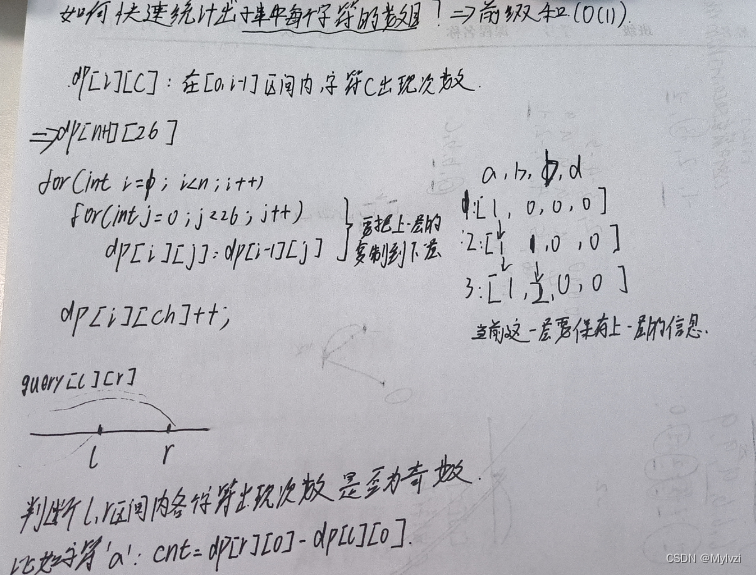 如何快速统计出子串中每个字符的数目？⇒前缀和(O(1)).
dp[i][C]：在[0,i-1]区间内,字符C出现次数.
⇒dp[n+1][26]
for(int i=0; i<n; i++)
for(int j=0; j<26; j++)
dp[i][j]=dp[i-1][j]
要把上一层的
复制到下层
dp[i][ch]++;
a, b, c, d
1:[1, 0, 0, 0]
2:[1 1, 0, 0]
3:[1, 2, 0, 0]
当前这一层要保有上一层的信息.
query[l][r]
l r
判断l,r区间内各字符出现次数是否为奇数.
比如字符'a'：cnt=dp[r][0]-dp[l][0].
CSDN @Mylvzi